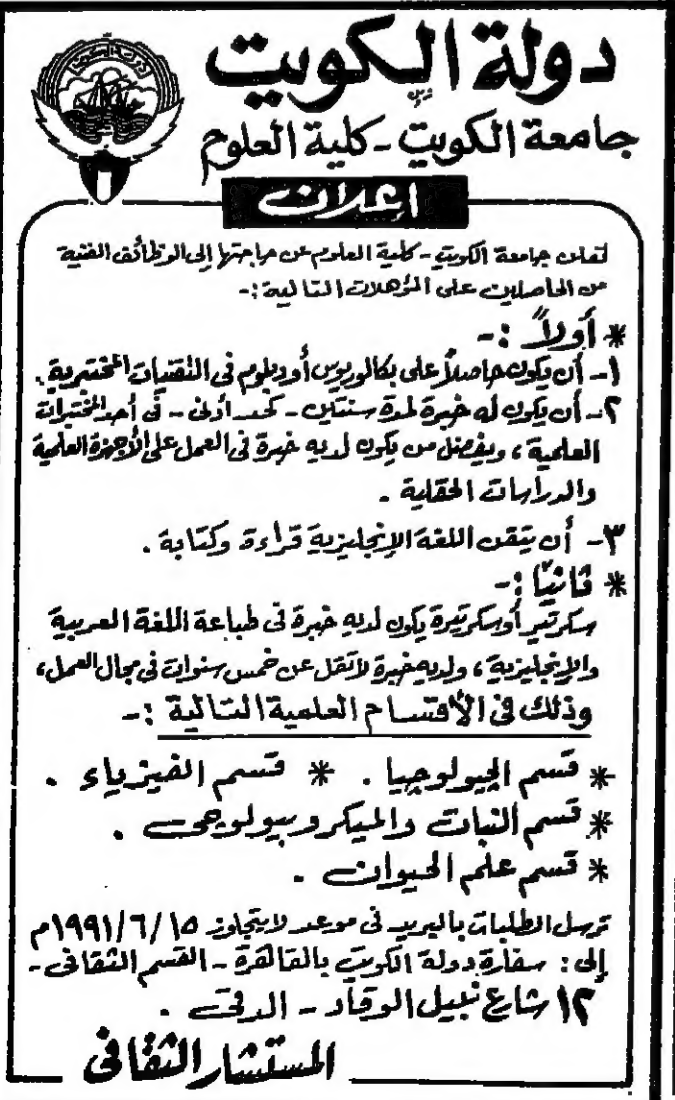 دولة الكويت
جامعة الكويت - كلية العلوم
إعلان
تعلن جامعة الكويت - كلية العلوم عن حاجتها إلى الوظائف الفنية
من الحاصلين على المؤهلات التالية :-
* أولاً :-
١- أن يكون حاصلاً على بكالوريوس أو دبلوم في التقنيات المختبرية .
٢- أن يكون له خبرة لمدة سنتين - كحد أدنى - في أحد المختبرات
العلمية ، ويفضل من يكون لديه خبرة في العمل على الأجهزة العلمية
والدراسات الحقلية .
٣- أن يتقن اللغة الإنجليزية قراءة وكتابة .
* ثانيًا :-
سكرتير أو سكرتيرة يكون لديه خبرة في طباعة اللغة العربية
والإنجليزية ، ولديه خبرة لا تقل عن خمس سنوات في مجال العمل ،
وذلك في الأقسام العلمية التالية :-
* قسم الجيولوجيا . * قسم الفيزياء .
* قسم النبات والميكروبيولوجى .
* قسم علم الحيوان .
ترسل الطلبات بالبريد في موعد لا يتجاوز ١٩٩١/٦/١٥م
إلى : سفارة دولة الكويت بالقاهرة - القسم الثقافى -
١٢ شارع نبيل الوقاد - الدقى .
المستشار الثقافى